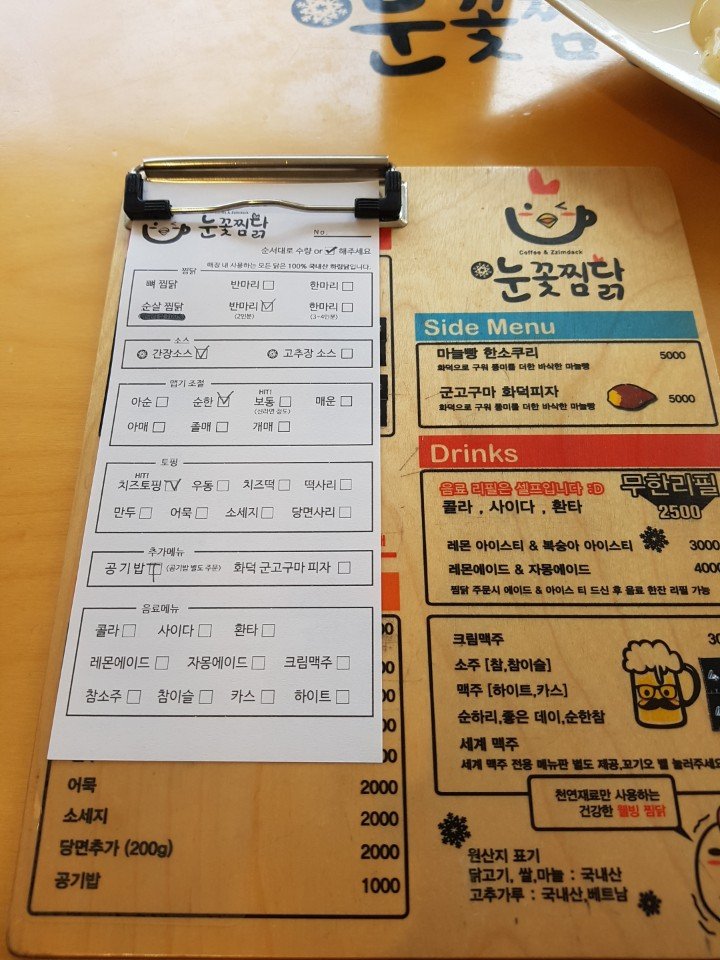 눈꽃찜닭
눈꽃찜닭
No
순서대로 수량 or ✓ 해주세요
매장 내 사용하는 모든 닭은 100% 국내산 하림닭입니다.
찜닭
뼈 찜닭 반마리 한마리
순살 찜닭 반마리 한마리
(2인분) (3~4인분)
소스
간장소스 고추장 소스
맵기 조절
HIT!
아순 순한 보통 매운
(신라면 정도)
아매 졸매 개매
토핑
HIT!
치즈토핑 우동 치즈떡 떡사리
만두 어묵 소세지 당면사리
추가메뉴
공기밥 (공기밥 별도 주문) 화덕 군고구마 피자
음료메뉴
콜라 사이다 환타
레몬에이드 자몽에이드 크림맥주
참소주 참이슬 카스 하이트
어묵 2000
소세지 2000
당면추가 (200g) 2000
공기밥 1000
Coffee & Zzimdack
눈꽃찜닭
Side Menu
마늘빵 한소쿠리 5000
화덕으로 구워 풍미를 더한 바삭한 마늘빵
군고구마 화덕피자 5000
화덕으로 구워 풍미를 더한 바삭한 마늘빵
Drinks
음료 리필은 셀프입니다 :D 무한리필
콜라 , 사이다 , 환타 2500
레몬 아이스티 & 복숭아 아이스티 3000
레몬에이드 & 자몽에이드 4000
찜닭 주문시 에이드 & 아이스 티 드신 후 음료 한잔 리필 가능
크림맥주
소주 [참,참이슬]
맥주 [하이트,카스]
순하리,좋은 데이,순한참
세계 맥주
세계 맥주 전용 메뉴판 별도 제공,꼬기오 벨 눌러주세요
천연재료만 사용하는
건강한 웰빙 찜닭
원산지 표기
닭고기, 쌀,마늘 : 국내산
고추가루 : 국내산,베트남